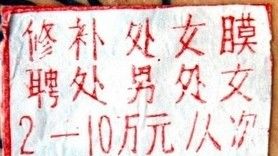 修补处女膜
聘处男处女
2—10万元/人次